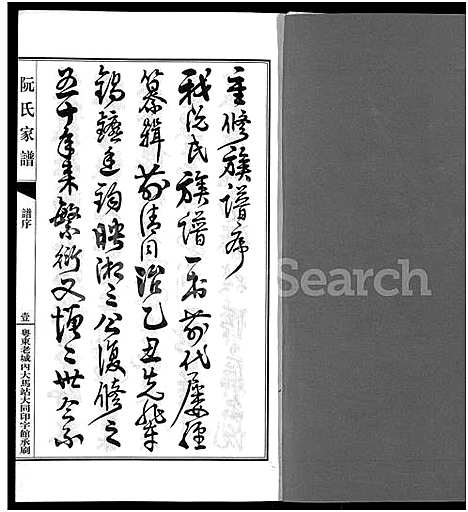 重修族譜序
我阮氏族譜一書前代屢經
纂輯前清同治乙丑先輩
錫鑣廷鈞映湘三公復修之
五十年來繁衍又增二世今不
阮氏家譜
譜序
壹
粵東老城內大馬站大同印字館承刷
Search